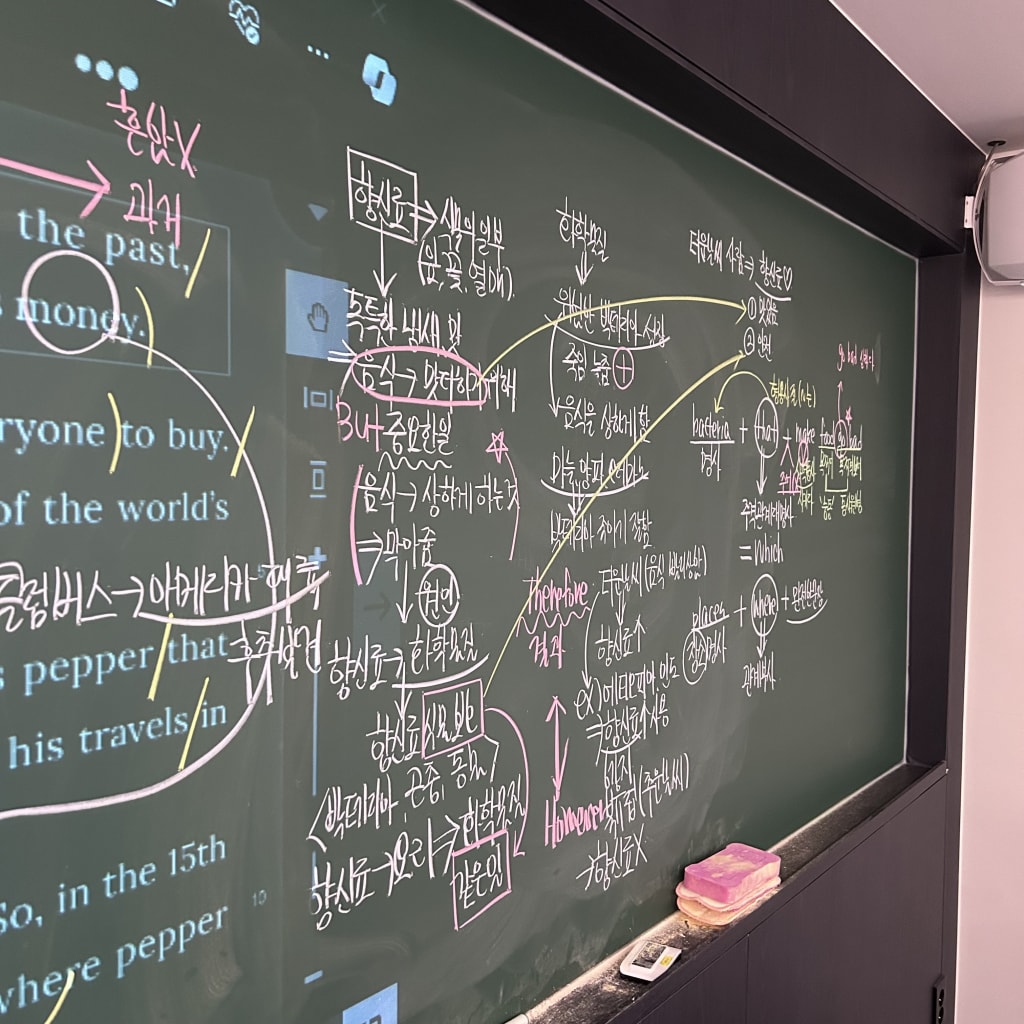 흔합X.
과거
the past,
money.
ryone to buy.
of the world's
콜럼버스→아메리카
후추
pepper that
his travels in
So, in the 15th
10
where pepper
향신료→식물의 일부
(잎, 꽃, 열매).
독특한 냄새, 맛
음식→맛더하기 위해
But 중요한일
음식→상하게 하는것
⇒막아줌
원인
향신료→화학물질
향신료 식물 보호
<박테리아, 곤충, 동물>
향신료→요리⇒화학물질
같은일
화학물질
박테리아
죽임 늦춤 +
음식을 상하게 함
마늘, 양파, 오레가노
박테리아 죽이기 잘함
Therefore
결과
더운날씨(음식 빨리상함)
향신료↑
ex) 에티오피아, 인도
⇒향신료↑사용
However
(추운날씨)
→향신료X
더운날씨 사람⇒향신료♡
① 맛있음
② 안전
go bad 상하다
bacteria + that + make food go bad
명사
주격관계대명사
= which
places + where + 완전한문장
장소명사
관계부사